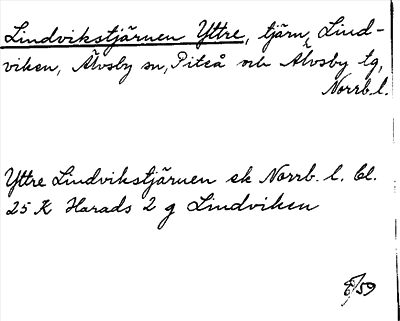 Lindvikstjärnen Yttre, tjärn, Lind-
viken, Älvsby sn, Piteå och Älvsby tg,
Norrb. l.
Yttre Lindvikstjärnen ek Norrb. l. bl.
25 K Harads 2 g Lindviken
8/59